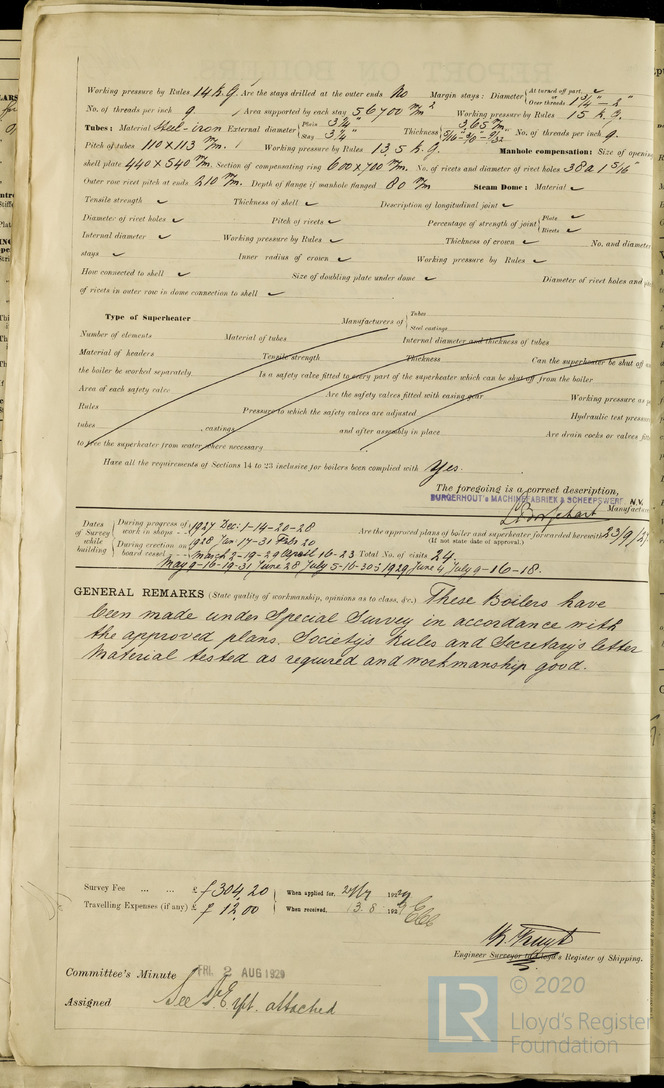 Working pressure by Rules 14 k.g. Are the stays drilled at the outer ends No Margin stays: Diameter { At turned off part, or Over threads 1 3/4" – 2"
No. of threads per inch 9. Area supported by each stay 56700 m/m² Working pressure by Rules 15 k.g.
Tubes: Material Steel-iron External diameter { Plain 3 1/4" Stay 3 1/4" Thickness { 3,65 m/m 5/16 – 3/8 – 9/32" No. of threads per inch 9.
Pitch of tubes 110 x 113 m/m. Working pressure by Rules 13,5 k.g. Manhole compensation: Size of opening
shell plate 440 x 540 m/m. Section of compensating ring 600 x 700 m/m. No. of rivets and diameter of rivet holes 38 a 1 5/16"
Outer row rivet pitch at ends 210 m/m. Depth of flange if manhole flanged 80 m/m Steam Dome: Material ✓
Tensile strength ✓ Thickness of shell ✓ Description of longitudinal joint ✓
Diameter of rivet holes ✓ Pitch of rivets ✓ Percentage of strength of joint { Plate ✓ Rivets ✓
Internal diameter ✓ Working pressure by Rules ✓ Thickness of crown ✓ No. and diameter
stays ✓ Inner radius of crown ✓ Working pressure by Rules ✓
How connected to shell ✓ Size of doubling plate under dome ✓ Diameter of rivet holes and
of rivets in outer row in dome connection to shell ✓
Type of Superheater Manufacturers of { Tubes Steel castings
Number of elements Material of tubes Internal diameter and thickness of tubes
Material of headers Tensile strength Thickness Can the superheater be shut off
the boiler be worked separately Is a safety valve fitted to every part of the superheater which can be shut off from the boiler
Area of each safety valve Are the safety valves fitted with easing gear Working pressure as
Rules Pressure to which the safety valves are adjusted Hydraulic test pressure
tubes , castings and after assembly in place Are drain cocks or valves
to free the superheater from water where necessary
Have all the requirements of Sections 14 to 23 inclusive for boilers been complied with Yes.
The foregoing is a correct description,
BURGERHOUT's MACHINEFABRIEK & SCHEEPSWERF N.V.
Manufacture
Dates of Survey while building { During progress of work in shops - - 1927 Dec: 1-14-20-28
During erection on board vessel - - - 1928 Jan 17-31 Feb 20
Are the approved plans of boiler and superheater forwarded herewith 23/9/27
(If not state date of approval.)
March 2-19-29 April 16-23 Total No. of visits 24.
May 9-16-19-31 June 28 July 5-16-30 1929 June 4 July 9-16-18.
GENERAL REMARKS (State quality of workmanship, opinions as to class, &c.) These Boilers have
been made under Special Survey in accordance with
the approved plans. Society's Rules and Secretary's letter
Material tested as required and workmanship good.
Survey Fee ... ... £ ƒ 304,20 When applied for, 1929
Travelling Expenses (if any) £ ƒ 12,00 When received, 13.8 1929
Engineer Surveyor to Lloyd's Register of Shipping.
Committee's Minute FRI. 2 AUG 1929
Assigned See rpt. attached
© 2020
LR
Lloyd's Register
Foundation